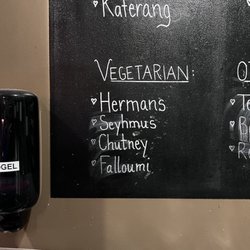 Katerang
VEGETARIAN:
Hermans
Seyhmus
Chutney
Falloumi
GEL